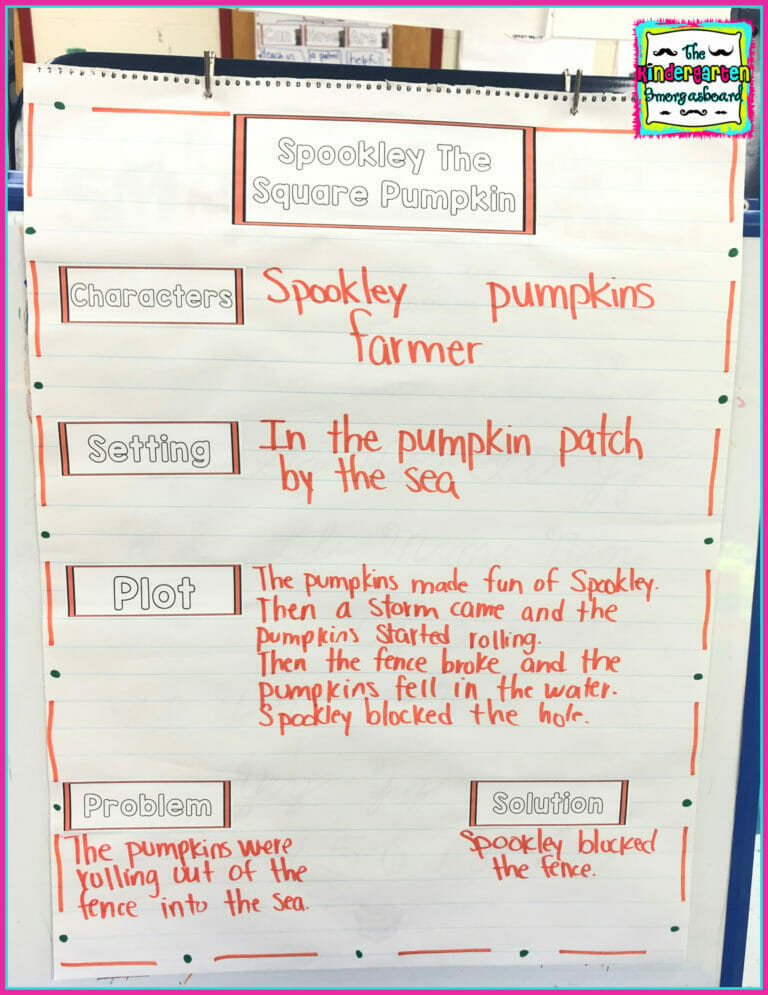 Can Have Are
teach us
helpful
The
Kindergarten
Smorgasboard
Spookley The
Square Pumpkin
Characters
Spookley pumpkins
farmer
Setting
In the pumpkin patch
by the sea
Plot
The pumpkins made fun of Spookley.
Then a storm came and the
pumpkins started rolling.
Then the fence broke and the
pumpkins fell in the water.
Spookley blocked the hole.
Problem
The pumpkins were
rolling out of the
fence into the sea.
Solution
Spookley blocked
the fence.